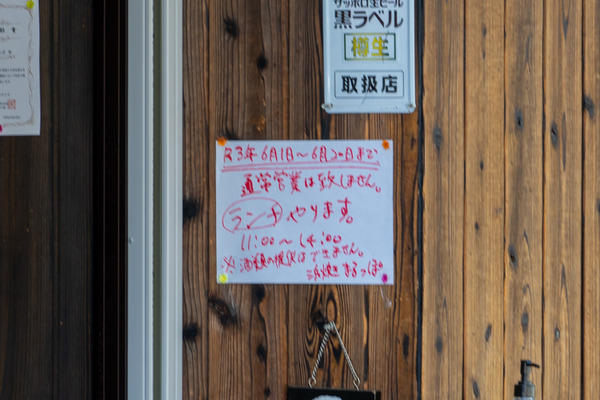 サッポロ生ビール
黒ラベル
樽生
取扱店
R3年6月1日〜6月20日まで、
通常営業は致しません。
ランチやります。
11:00〜14:00
※酒類の提供はできません。
浜焼きまるっぽ